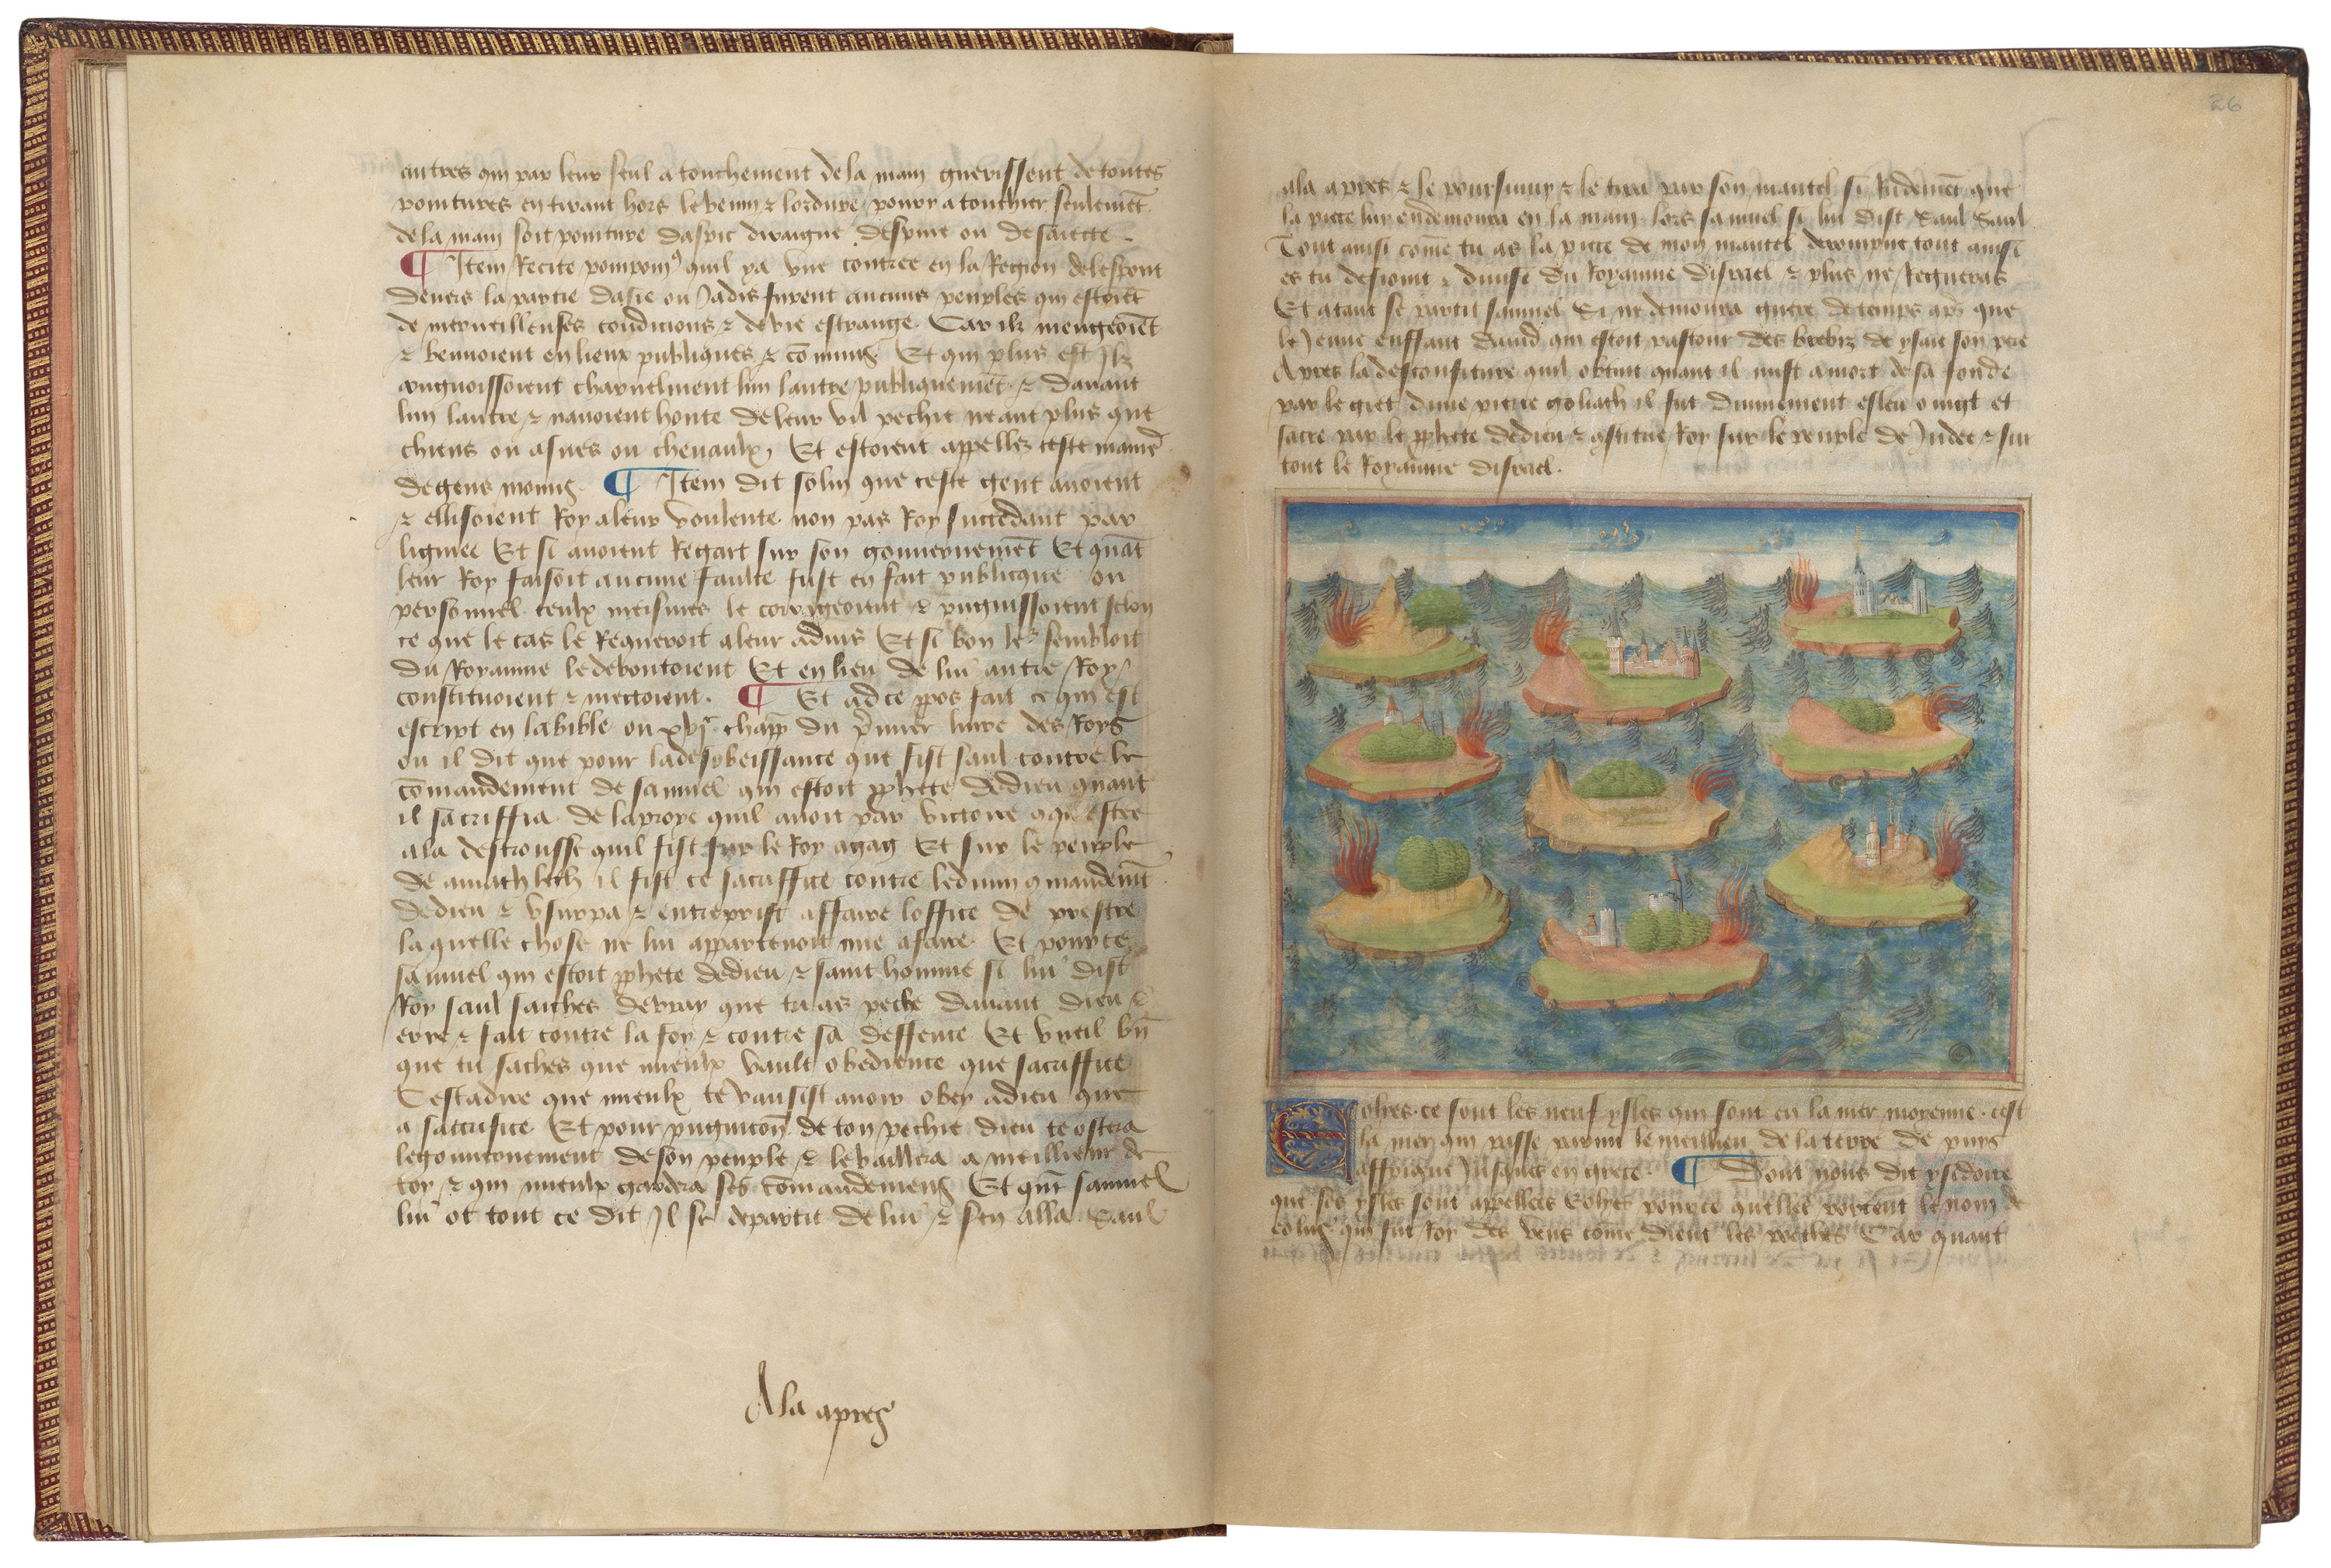 autres qui par leur seul atouchement de la main guerissent de toutes
pointures en tirant hors le venin ⁊ lordure pour y atouchier seulemēt
de la main soit pointure daspic diraigne despine ou de saiecte
¶ Item Recite pompoīꝰ quil ya vne contree en la Region delespont
deuers la partie dasie ou Jadis furent aucuns peuples qui estoiēt
de merueilleuses condicions ⁊ de vie estrange. Car ilz mengeoiēt
⁊ beuuoient en lieux publiques ⁊ cōmuns Et qui plus est Ilz
congnoissoient charnelment lun lautre publiquemēt ⁊ dauant
lun lautre ⁊ nauoient honte de leur vil pechie neant plus que
chiens ou asnes ou cheuaulx, Et estoient appellez ceste manie
de gens
¶ Item dit solin que ceste gent auoient
⁊ ellisoient Roy aleur voulente non pas Roy succedant par
lignee Et si auoient Regart sur son gouuernemēt Et quāt
leur Roy faisoit aucune faulte fust en fait publicque ou
personnel ceulx meismes le corrigeoient ⁊ pugnissoient selon
ce que le cas le Requeroit aleur aduis Et si bon le sembloit
du Royaume le deboutoient Et en lieu de lui autre Roy
constituoient ⁊ mectoient. ¶ Et ad ce ꝓpos fait ce qui est
escript en la bible ou xvj chapp du p̄mier liure des Roys
ou il dit que pour la desobeissance que fist saul contre le
cōmandement de samuel qui estoit ꝓphete de dieu quant
il sacriffia de la proye quil auoit par victoire
ala destrousse quil fist sur le Roy agag Et sur le peuple
de amathlech il fist ce sacriffice contre le diuin
de dieu ⁊ vsurpa ⁊ entreprist affaire loffice de prestre
laquelle chose ne lui appartenoit mie afaire Et pour ce
samuel qui estoit ꝓphete de dieu ⁊ saint homme si lui dist
Roy saul saiches de vray que tu as pechie dauant dieu ⁊
erre ⁊ fait contre la foy ⁊ contre sa deffence Et vueil bn̄
que tu saches que mieulx vault obedience que sacriffice
Cestadire que mieulx te vausist auoir obey adieu que
a sacrifice Et pour pugnicoñ de ton pechie dieu te ostera
le gouuernement de son peuple ⁊ le baillera a meillieur de
toy ⁊ qui mieulx gardera ses cōmandemens Et quāt samuel
lui ot tout ce dit Il se departit de lui ⁊ sen alla Saul
Ala apres
26
ala apres ⁊ le poursiuuy ⁊ le tira par son mantel si Ridemēt que
la piece luy en demoura en la main lors samuel si lui dist Saul Saul
Tout ainsi come tu as la piece de mon mantel derompue tout ainsi
es tu desioint ⁊ diuise du Royaume disrael ⁊ plus ne Regneras
Et atant se partit samuel Si ne demoura guere de temps apꝭ que
le Jeune enffant dauid qui estoit pastour des brebiz de ysaie son pere
Apres la desconfiture quil obtint quant il mist amort de sa fonde
par le giet dune pierre goliath il fut diuinement esleu oingt et
sacre par le ꝓphete de dieu ⁊ ꝯstitue Roy sur le peuple de Judee ⁊ sur
tout le Royaume disrael.
Eolyes ce sont les neuf ysles qui sont en la mer moyenne cest
la mer qui passe parmi le meillieu de la terre de puis
affrique Jusques en grece. ¶ Dont nous dit ysidoire
que ses ysles sont appellees Eolyes pource quelles portent le nom de
eolus qui fut Roy des vens come dient les poethes Car quant